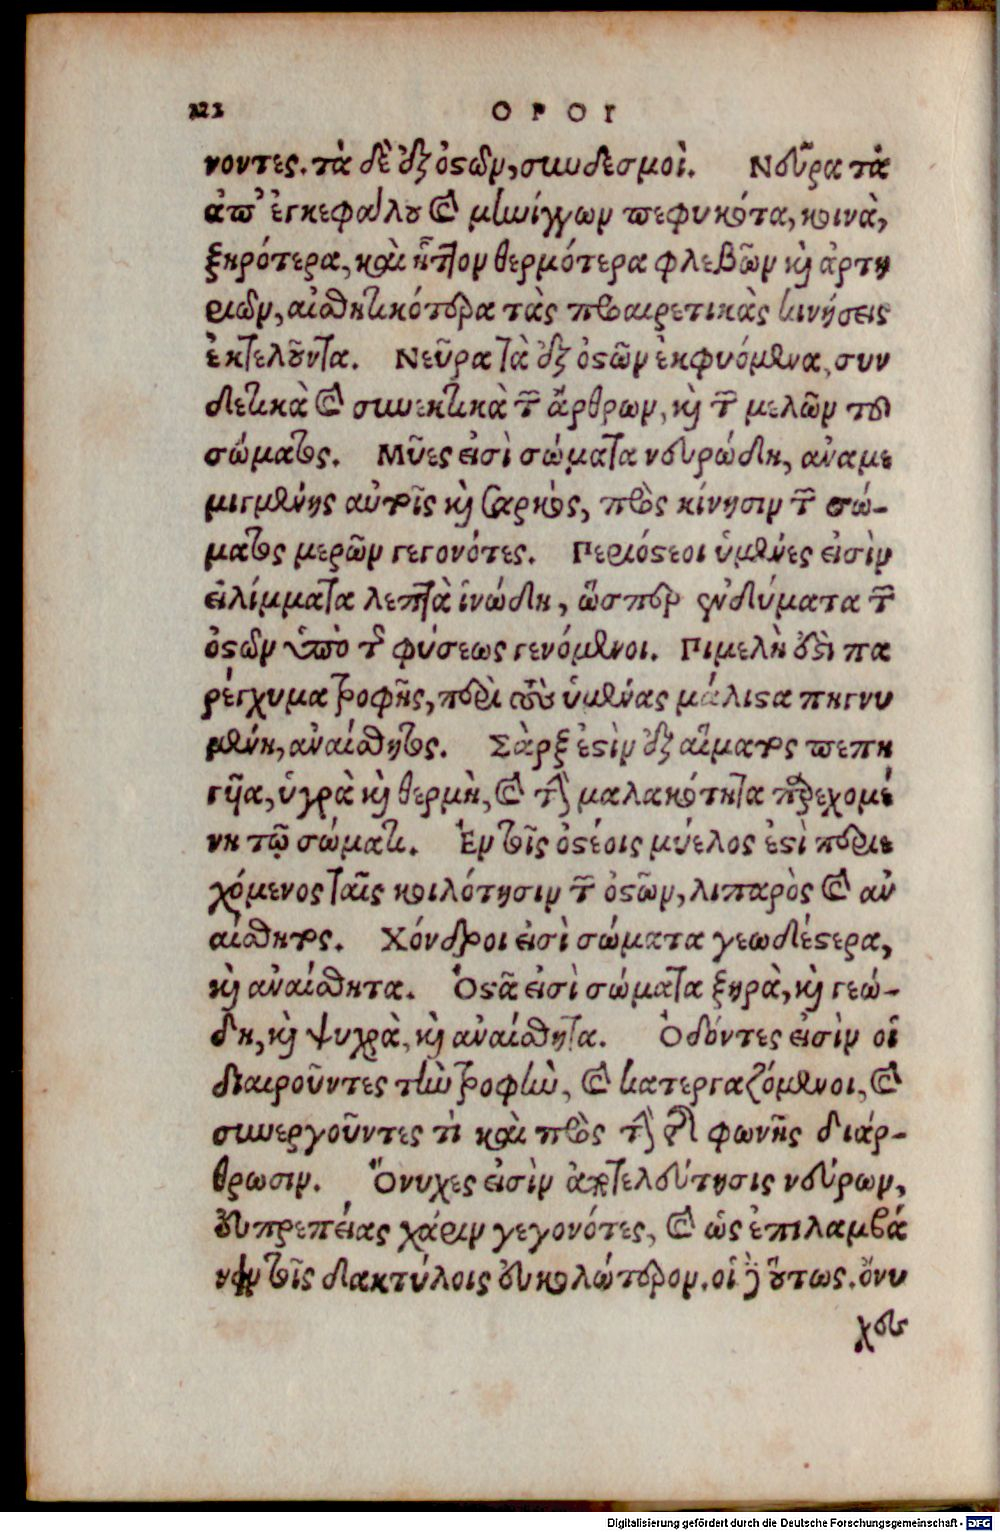 122 ΟΡΟΙ
νοντες. τὰ δὲ ἐξ ὀστῶν, συνδεσμοὶ. Νεῦρα τὰ
ἀπ' ἐγκεφάλου καὶ μηνίγγων πεφυκότα, κοινὰ,
ξηρότερα, καὶ ἧττον θερμότερα φλεβῶν καὶ ἀρτη
ριῶν, αἰσθητικότερα τὰς προαιρετικὰς κινήσεις
ἐκτελοῦντα. Νεῦρα τὰ ἐξ ὀστῶν ἐκφυόμενα, συν
δετικὰ καὶ συνεκτικὰ τῶν ἄρθρων, καὶ τῶν μελῶν τοῦ
σώματος. Μῦες εἰσὶ σώματα νευρώδη, ἀναμε
μιγμένης αὐτοῖς καὶ σαρκὸς, πρὸς κίνησιν τῶν σώ-
ματος μερῶν γεγονότες. Περιόστεοι ὑμένες εἰσὶν
εἰλίμματα λεπτὰ ἰνώδη, ὥσπερ ἐνδύματα τῶν
ὀστῶν ὑπὸ τῆς φύσεως γενόμενοι. Πιμελὴ ἐστὶ πα
ρέγχυμα τροφῆς, περὶ τοὺς ὑμένας μάλιστα πηγνυ
μένη, ἀναίσθητος. Σὰρξ ἐστὶν ἐξ αἵματος πεπη
γῆα, ὑγρὰ καὶ θερμὴ, καὶ τὴν μαλακότητα παρεχομέ
νη τῷ σώματι. Ἐν τοῖς ὀστέοις μύελος ἐστὶ περιε
χόμενος ταῖς κοιλότησιν τῶν ὀστῶν, λιπαρὸς καὶ ἀν
αίσθητος. Χόνδροι εἰσὶ σώματα γεωδέστερα,
καὶ ἀναίσθητα. Ὀστᾶ εἰσὶ σώματα ξηρὰ, καὶ γεώ-
δη, καὶ ψυχρὰ, καὶ ἀναίσθητα. Ὀδόντες εἰσὶν οἱ
διαιροῦντες τὴν τροφὴν, καὶ κατεργαζόμενοι, καὶ
συνεργοῦντες τι καὶ πρὸς τὴν τῆς φωνῆς διάρ-
θρωσιν. Ὄνυχες εἰσὶν ἀποτελεύτησις νεύρων,
εὐπρεπείας χάριν γεγονότες, καὶ ὡς ἐπιλαμβά
νειν τοῖς δακτύλοις εὐκολώτερον. οἱ δὲ οὕτως. ὄνυ
χες
Digitalisierung gefördert durch die Deutsche Forschungsgemeinschaft - DFG